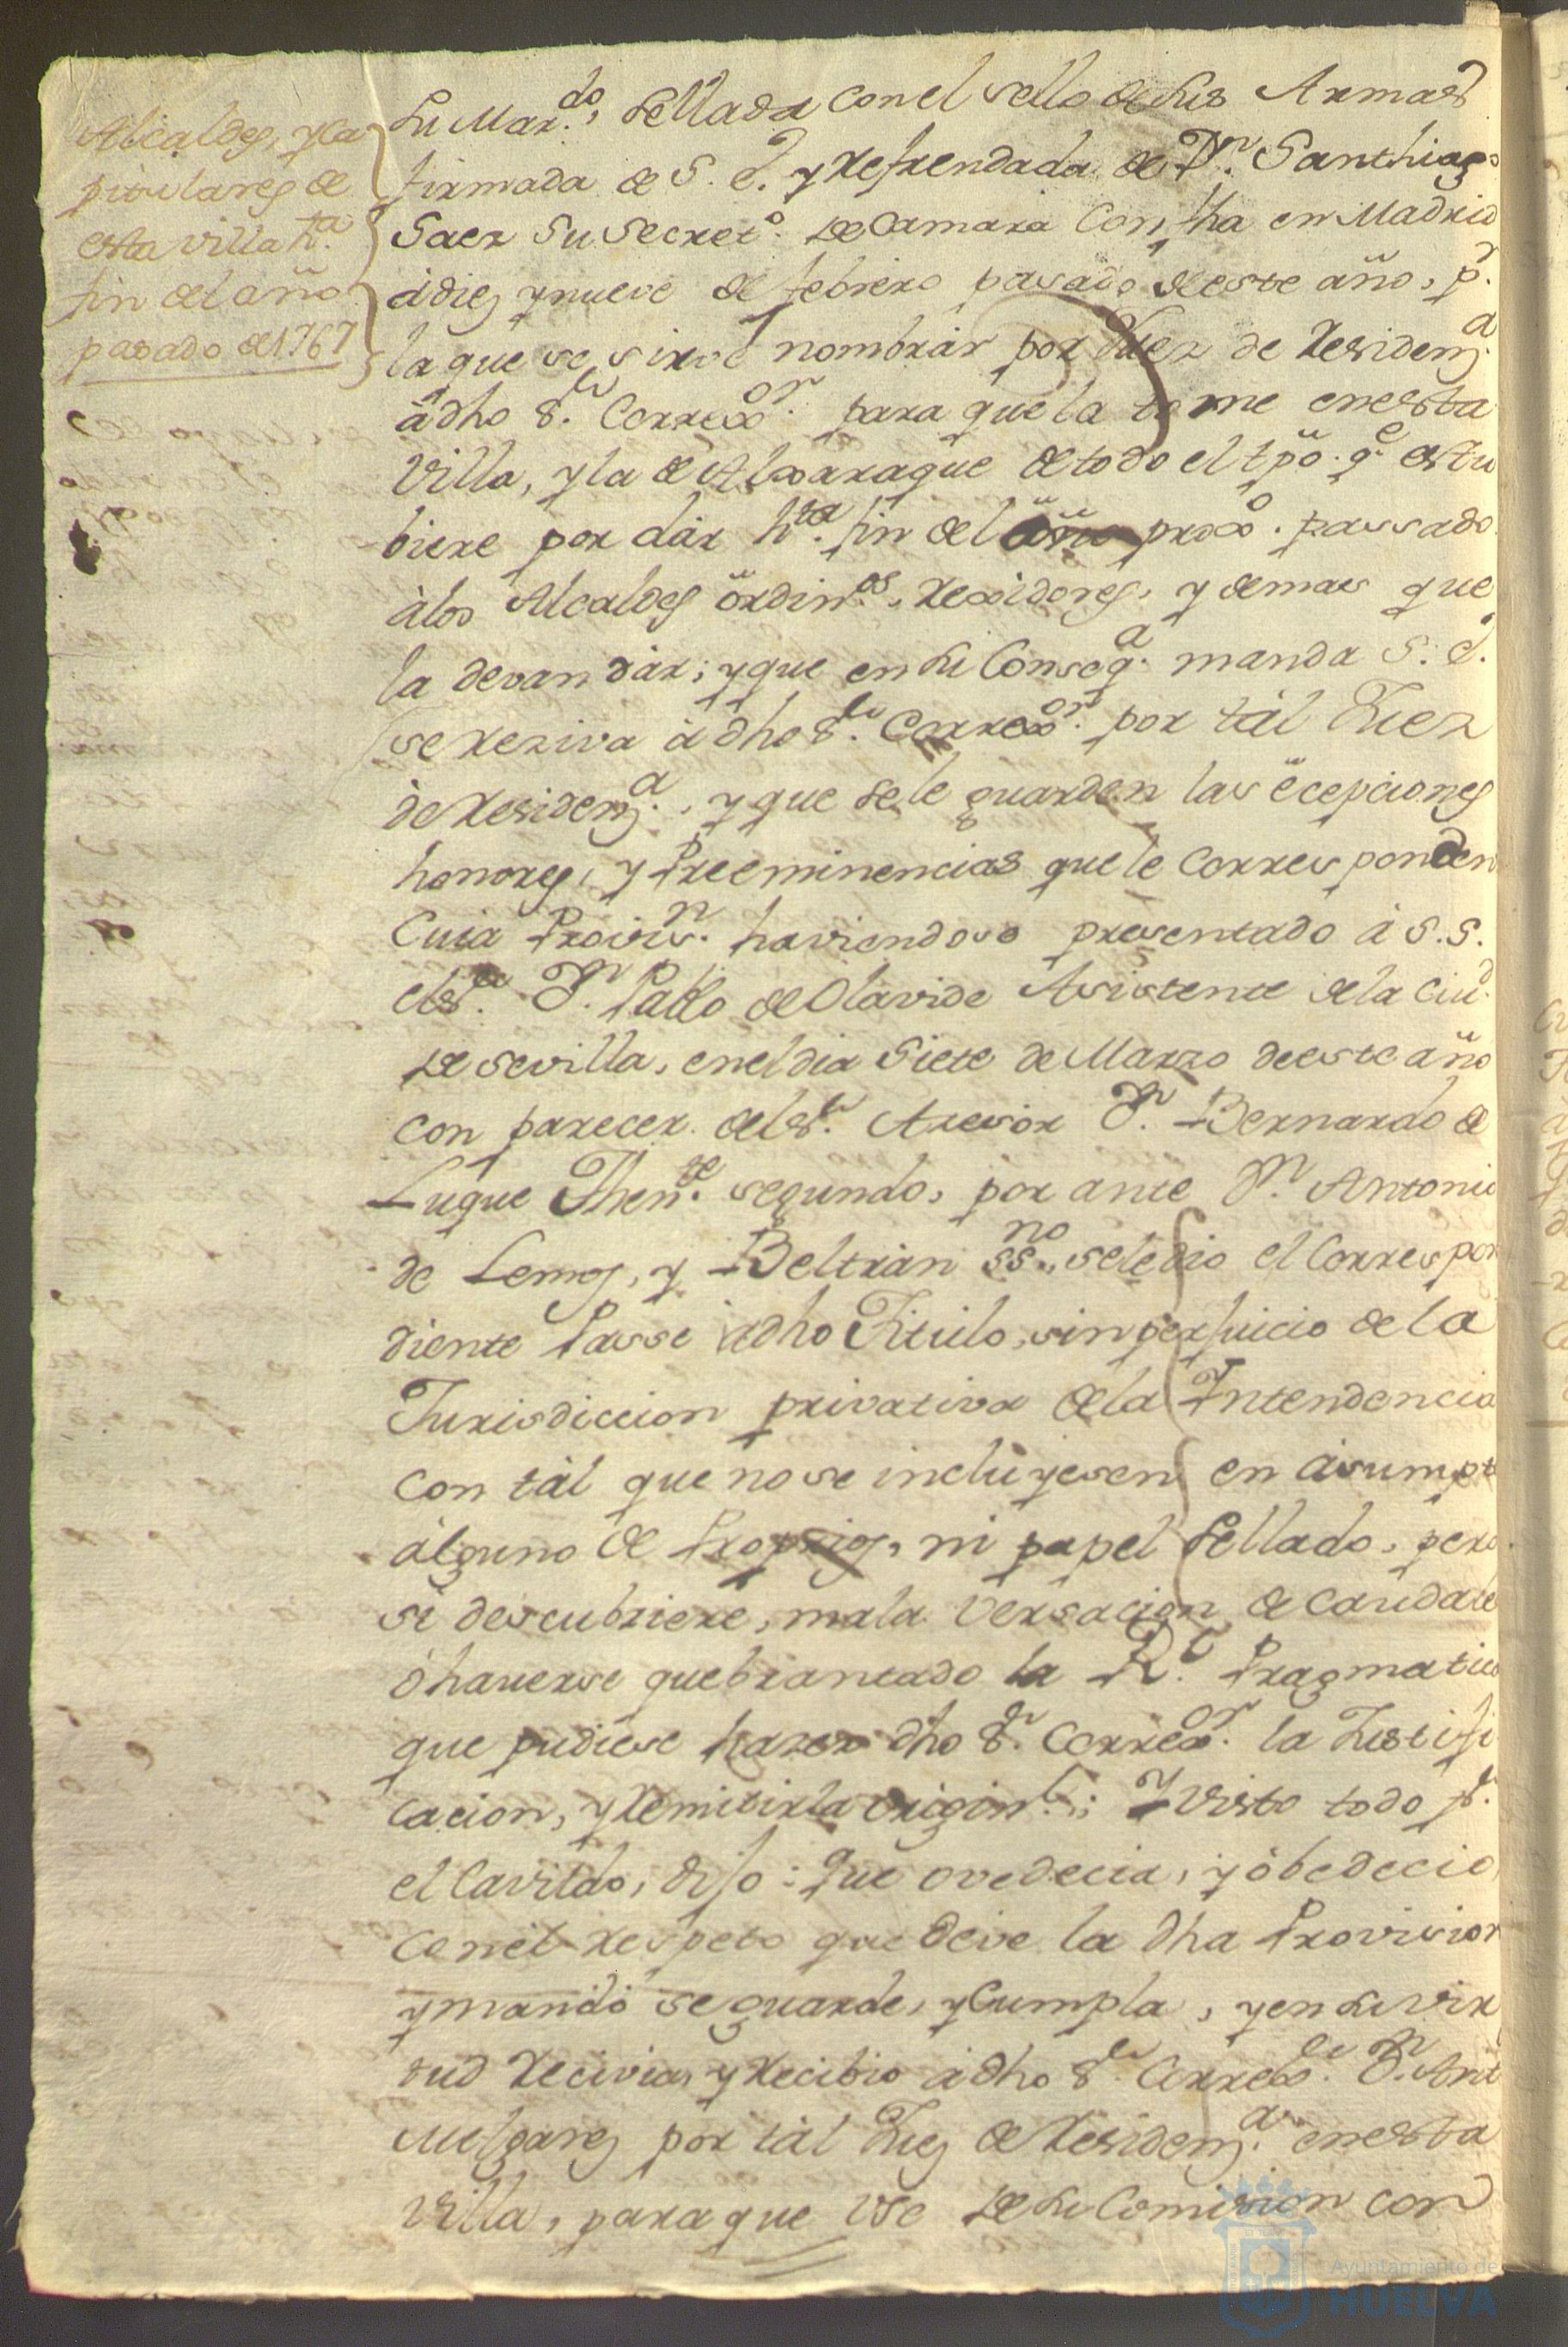 Alcaldes, y Ca
pitulares de
esta villa h.ta
fin del año
pasado de 1767
Su Mar.do, Sellada con el sello de sus Armas
firmada de S. E. y Refrendada de D.n Santhiago
Saez su Secret.o de Camara con fha en Madrid
â diez y nueve de febrero pasado de este año, p.r
la que se sirve nombrar por Juez de Residenz.a
â dho S.or Correx.or para que la tome en esta
Villa, y la de Alxaraque de todo el tpõ. q.e estu
biere por dar h.ta fin del año prox.o passado
â los Alcaldes ordin.os, Rexidores, y demas que
la devan dàr; y que en su Conseq.a manda S. E.
se reziva â dho S.or Correx.or por tàl Juez
de Residenz.a, y que se le guarden las ecepciones
honores, y Preeminencias que le corresponden
Cuia Provis.n haviendose presentado â S. S.
el S.or D.n Pablo de Olavide Asistente de la Ciud.d
de Sevilla, en el dia Siete de Marzo de este año
con parecer del S.or Asesor D.n Bernardo de
Luque Then.te segundo, por ante D.n Antonio
de Lemos, y Beltràn ss.no, se le dio el Correspon
diente Passe â dho Titulo, sin perjuicio de la
Jurisdiccion privativa de la Intendencia
con tàl que no se incluyesen en asumpto
alguno de Proprios, ni papel Sellado, pero
si descubriere, mala versacion de Caudale
ô haverse quebrantado la R.l Pragmatica
que pudiese hazer dho S.or Correx.or la Justifi
cacion, y Remitirla origin.l; Y Visto todo p.r
el Cavildo, dijo: Que ovedecia, y obedecio
con el respeto que deve la dha Provision
y mandò se guarde, y Cumpla, y en su vir
tud Recivia, y Recibio â dho S.or Correx.or D.n Ant
Melgarez por tàl Juez de Residenz.a en esta
Villa, para que use de su Comision con
Ayuntamiento de
HUELVA